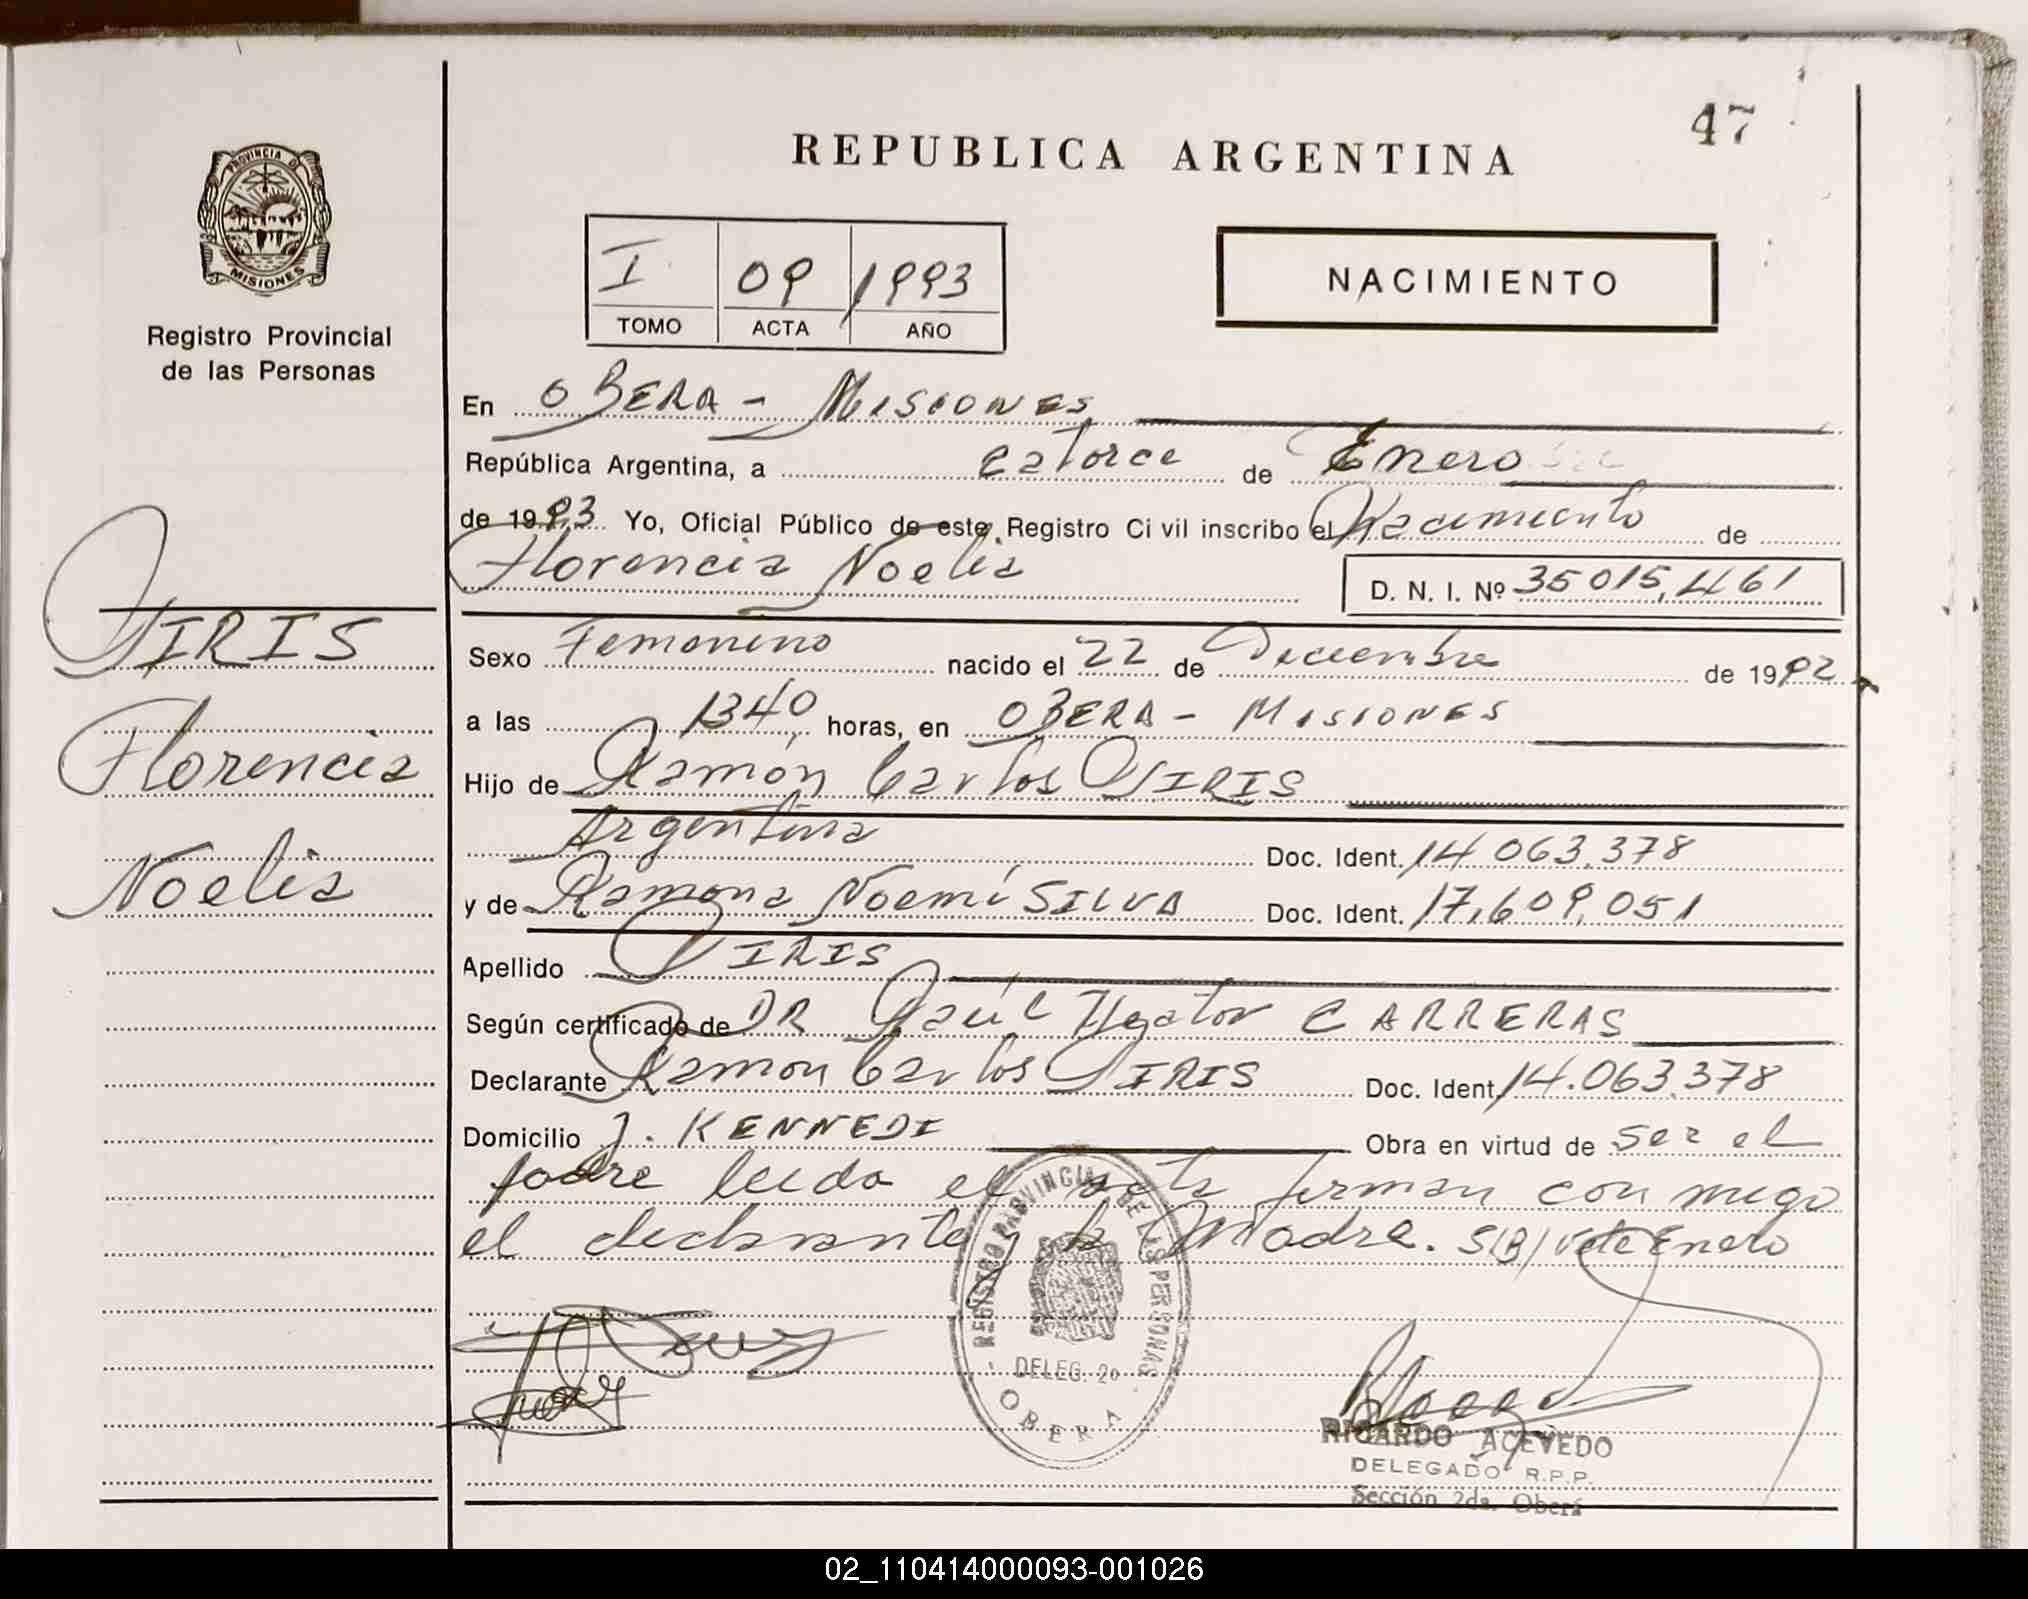 47
REPUBLICA ARGENTINA
PROVINCIA DE
MISIONES
Registro Provincial
de las Personas
I 09 1993
TOMO ACTA AÑO
NACIMIENTO
En OBERA - MISIONES
República Argentina, a catorce de Enero
de 1993 Yo, Oficial Público de este Registro Civil inscribo el Nacimiento de
Florencia Noelia D. N. I. Nº 35015,461
PIRIS
Florencia
Noelia
Sexo Femenino nacido el 22 de Diciembre de 1992
a las 1340 horas, en OBERA - MISIONES
Hijo de Ramón Carlos PIRIS
Argentina Doc. Ident. 14 063.378
y de Ramona Noemí SILVA Doc. Ident. 17,609,051
Apellido PIRIS
Según certificado de DR Raúl CARRERAS
Declarante Ramon Carlos PIRIS Doc. Ident. 14.063.378
Domicilio J. KENNEDI Obra en virtud de ser el
padre leida el acta firman con migo
el declarante y la Madre. S(B) vale Enero
REGISTRO PROVINCIAL DE LAS PERSONAS
- DELEG. 2º -
OBERA
RICARDO ACEVEDO
DELEGADO R.P.P.
Sección 2da. Oberá
02_110414000093-001026